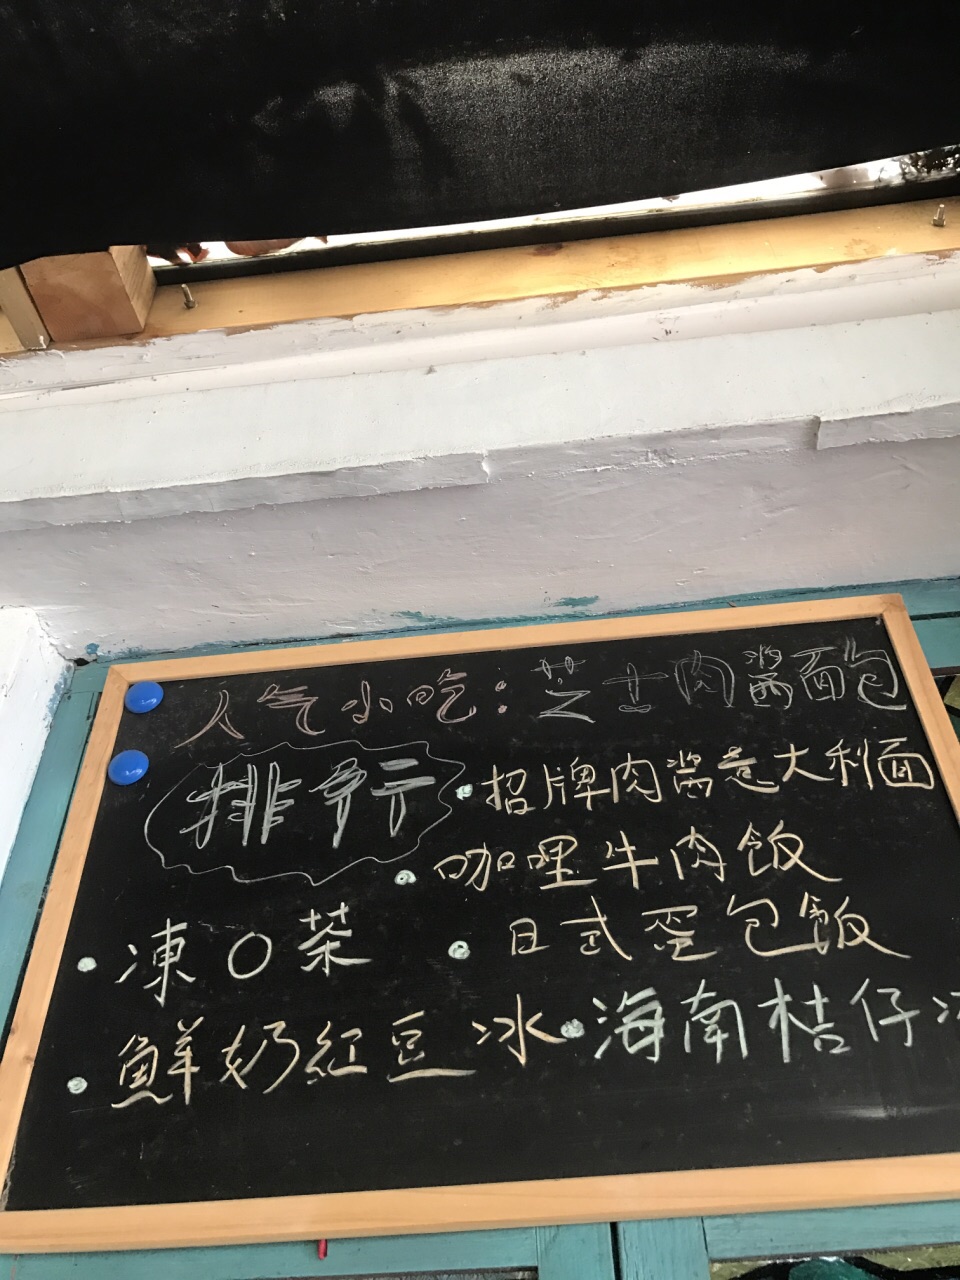 人气小吃：芝士肉醬面包
排行
·招牌肉醬意大利面
·咖哩牛肉飯
·凍O茶
·日式蛋包飯
·鮮奶紅豆冰
·海南桔仔